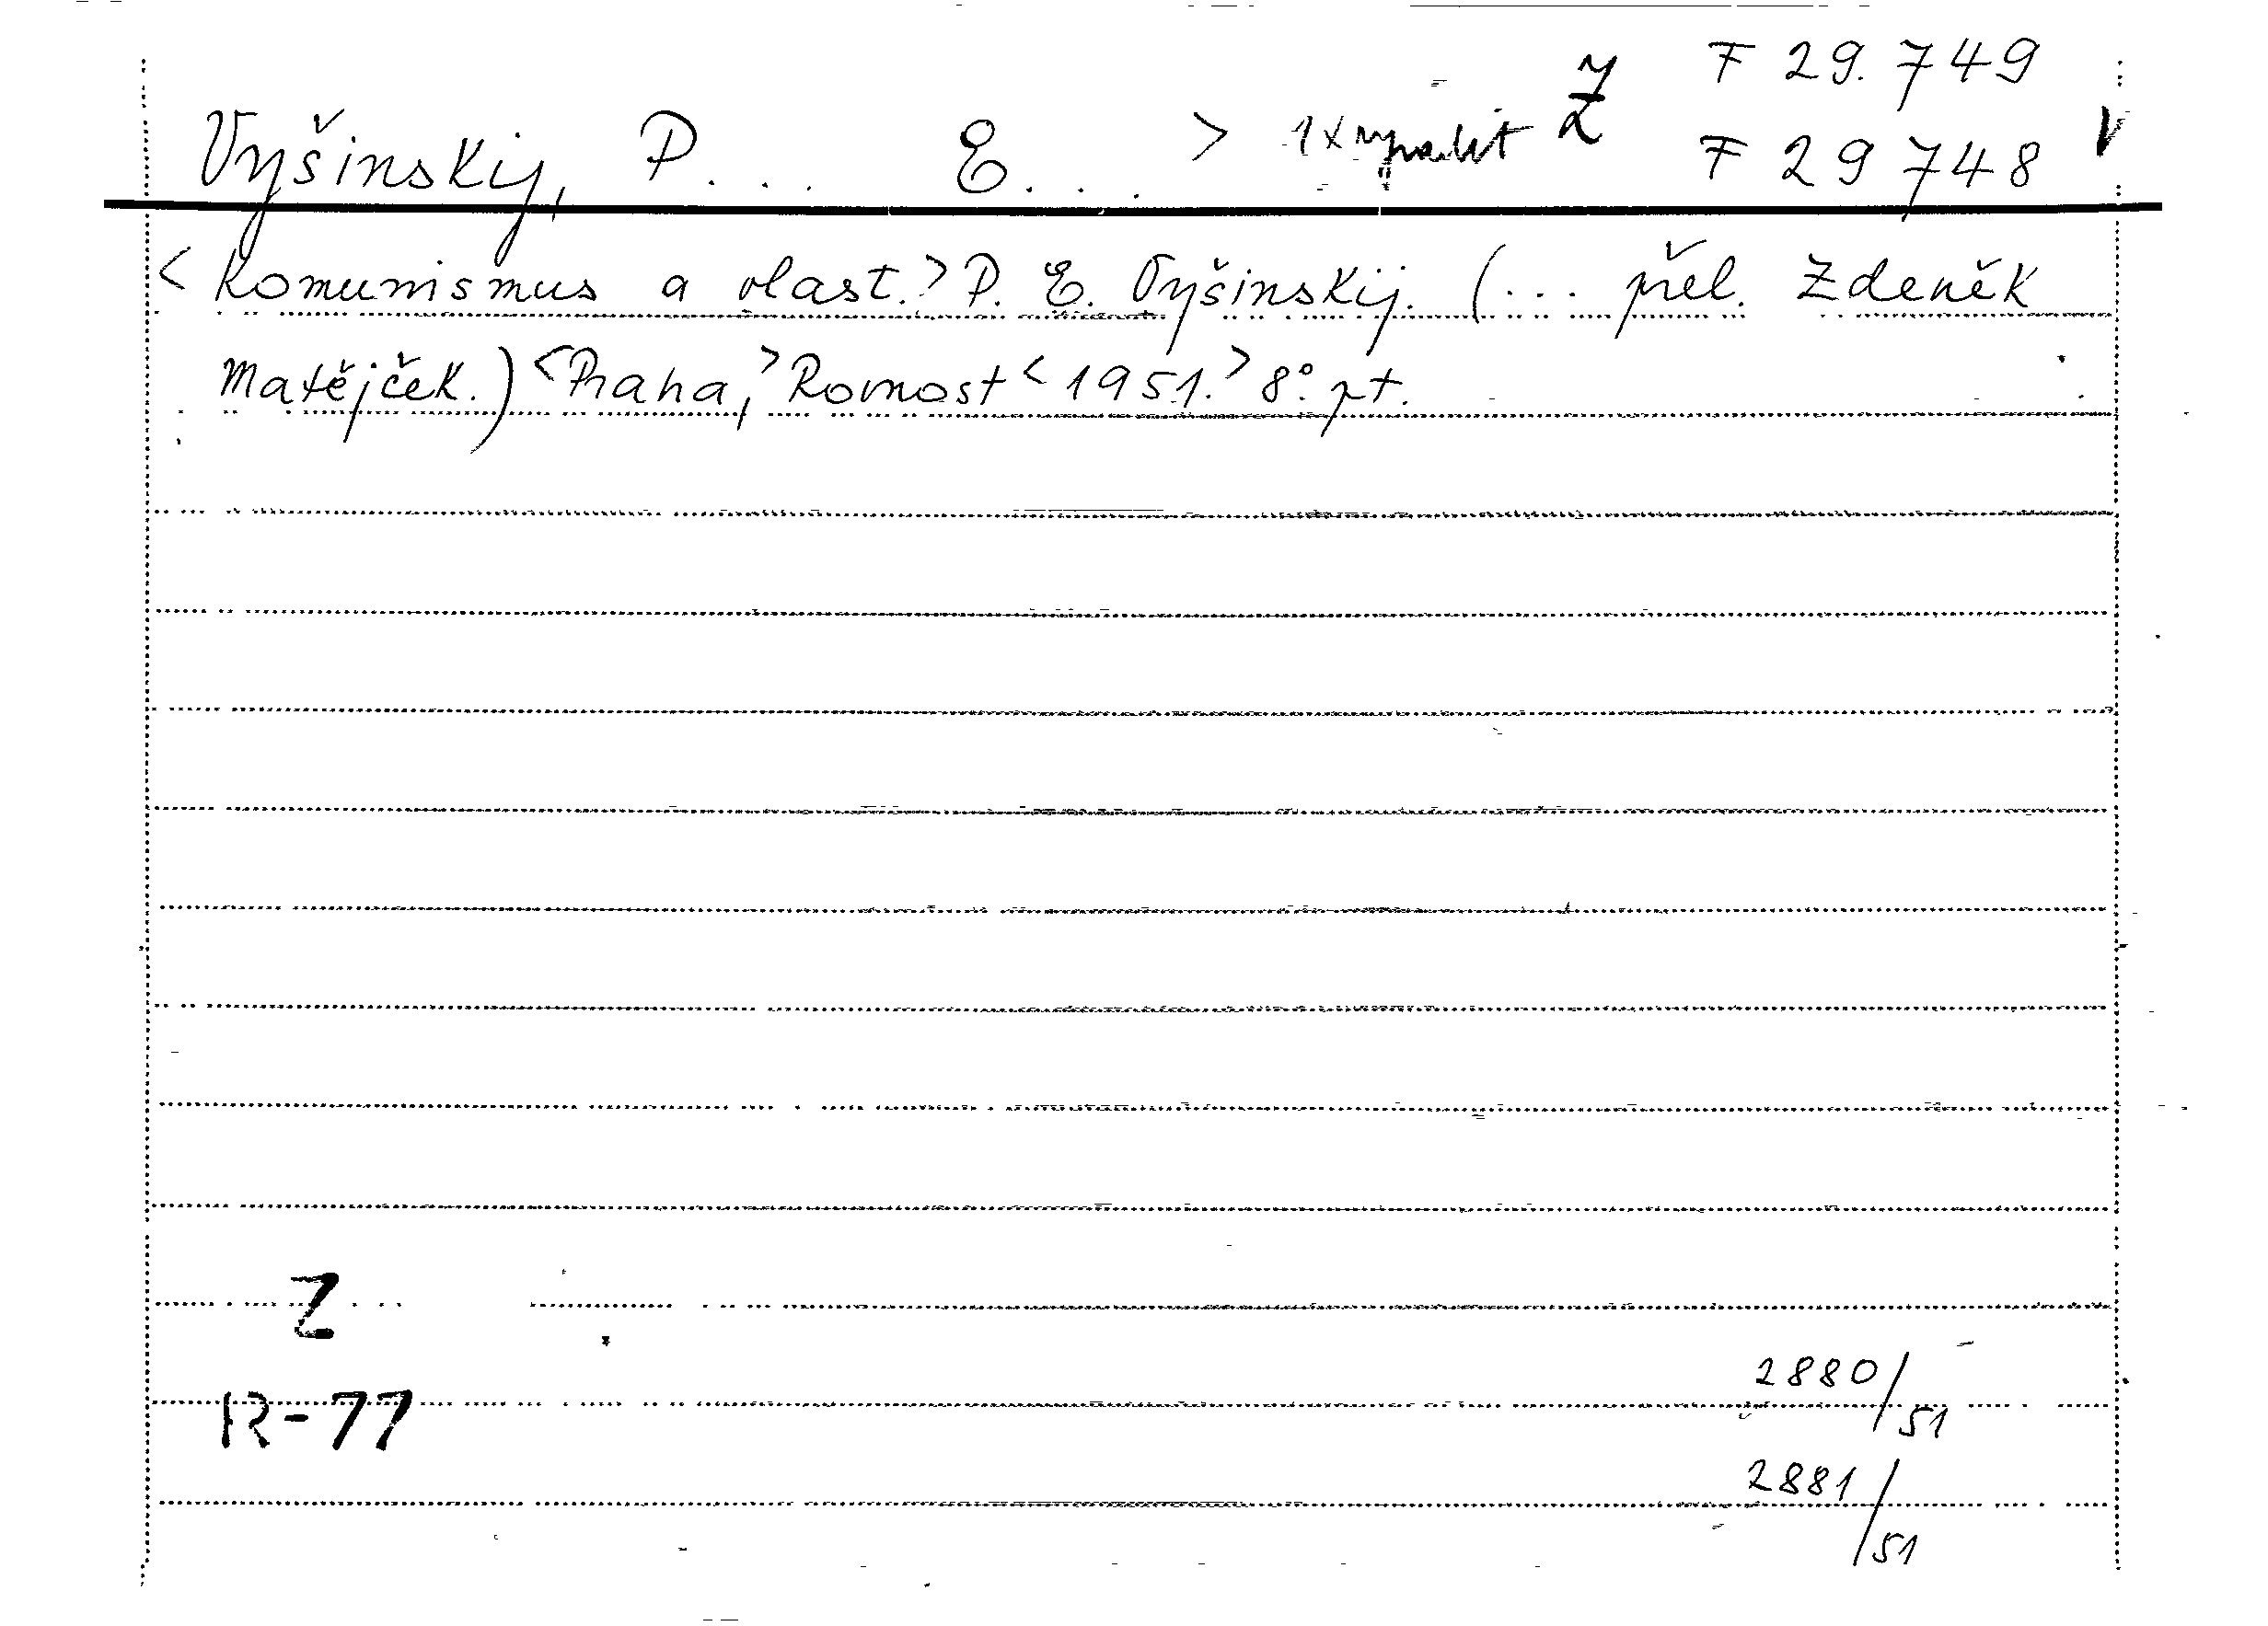 Z F 29.749
Vyšinskij, P... E... > 1x F 29 748 V
< Komunismus a vlast.> P. E. Vyšinskij. (... přel. Zdeněk
Matějček.) <Praha,> Rovnost <1951.> 8°. pt.
Z
2880/51
R-77
2881/51